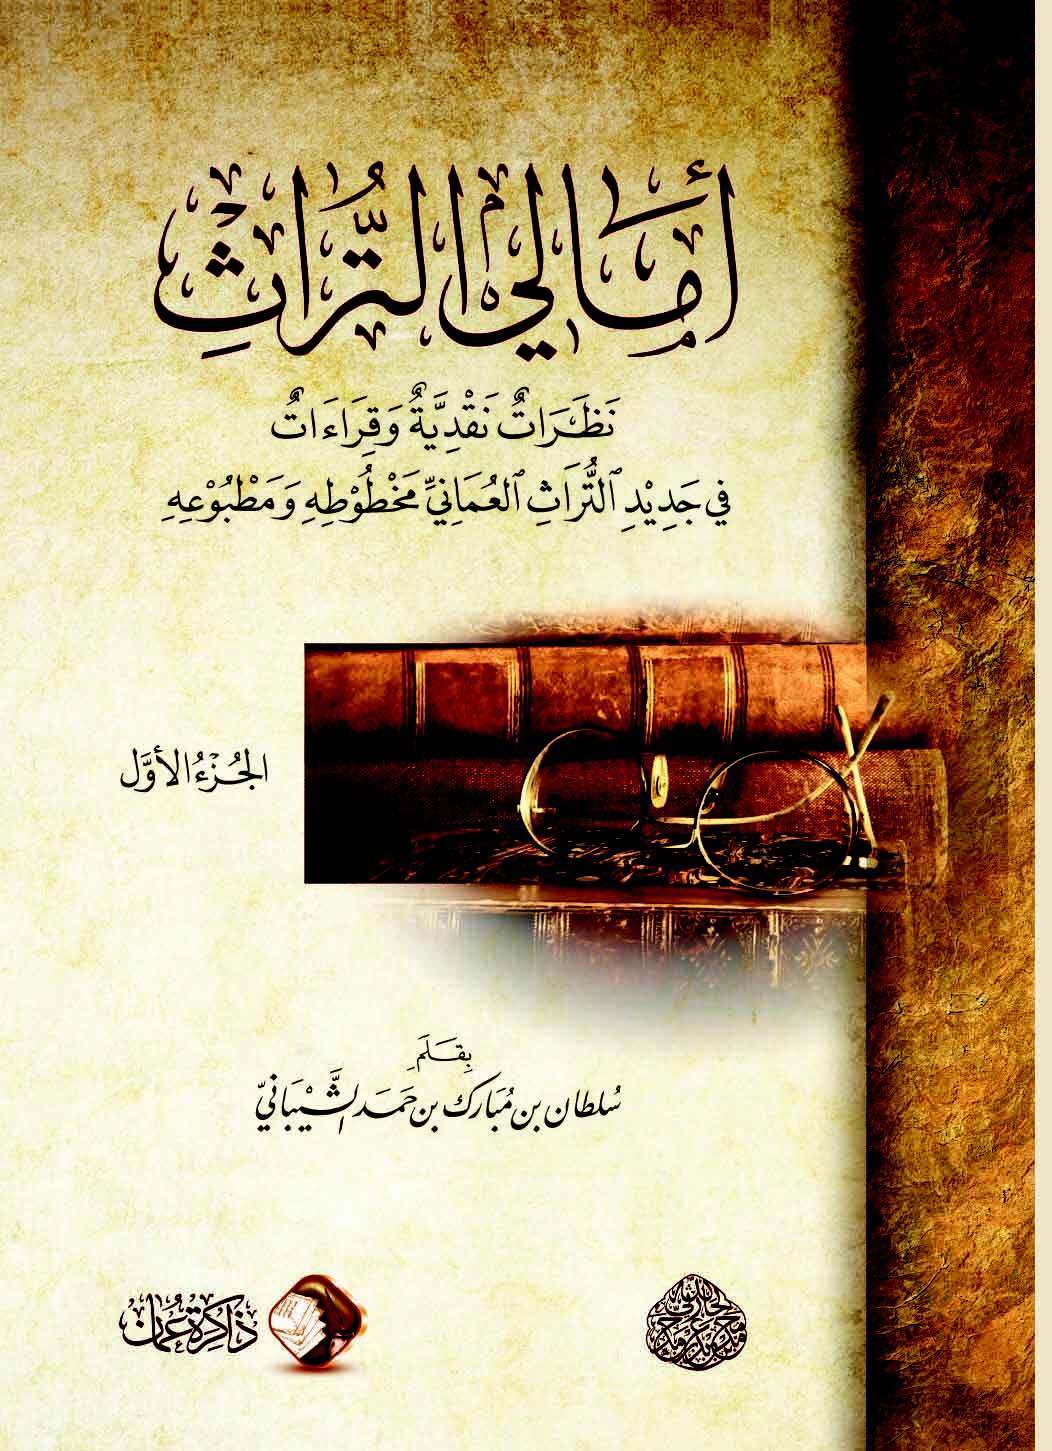 أَمَالي التُّرَاثِ
نَظَرَاتٌ نَقْدِيَّةٌ وَقِرَاءَاتٌ
في جَدِيْدِ ٱلتُّرَاثِ ٱلعُمَانِيِّ مَخْطُوْطِهِ وَمَطْبُوْعِهِ
الجُزْءُ الأوَّل
بِقَلَمِ
سُلطان بن مُبَارك بن حَمَد الشَّيْبَانيّ
ذاكرة عُمان